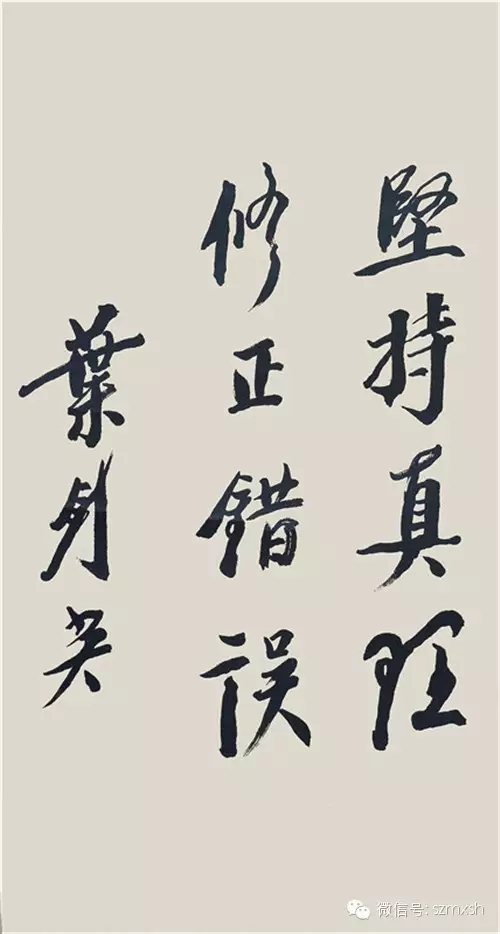 堅持真理
修正错误
葉剑英
微信号: szmxsh